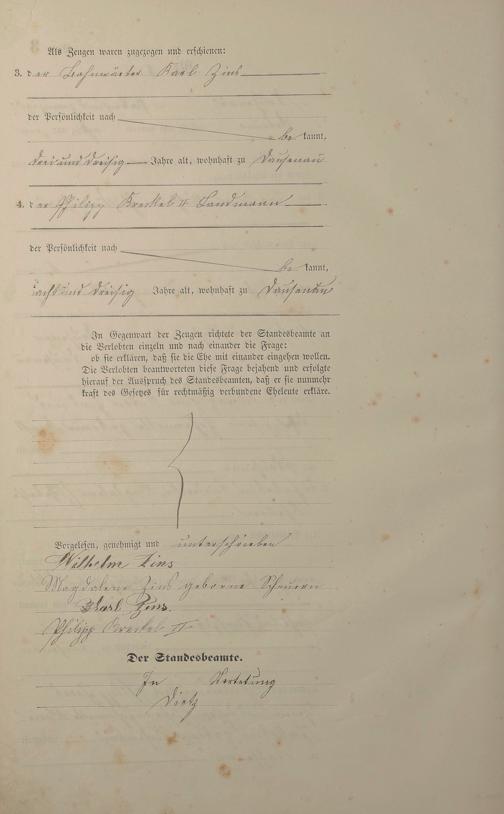 Als Zeugen waren zugezogen und erschienen:
3. der Bahnwärter Karl Zins
der Persönlichkeit nach
be kannt,
drei und dreißig Jahre alt, wohnhaft zu Dausenau
4. der Philipp II Landmann
der Persönlichkeit nach
be kannt,
acht und dreißig Jahre alt, wohnhaft zu Dausenau
In Gegenwart der Zeugen richtete der Standesbeamte an
die Verlobten einzeln und nach einander die Frage:
ob sie erklären, daß sie die Ehe mit einander eingehen wollen.
Die Verlobten beantworteten diese Frage bejahend und erfolgte
hierauf der Ausspruch des Standesbeamten, daß er sie nunmehr
kraft des Gesetzes für rechtmäßig verbundene Eheleute erkläre.
Vorgelesen, genehmigt und unterschrieben
Wilhelm Zins
Magdalene Zins geborne Scheuern
Karl Zins.
Philipp II
Der Standesbeamte.
In Vertretung
Dietz